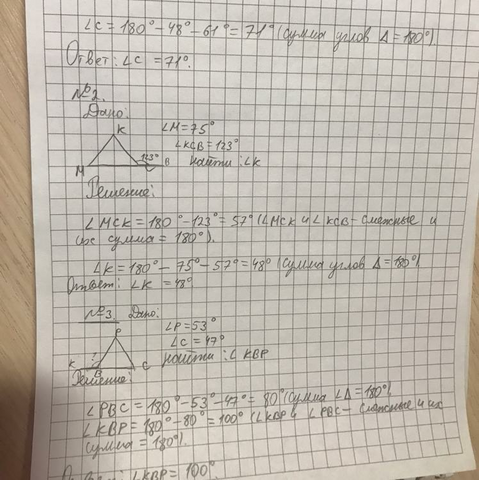 ∠C = 180° - 48° - 61° = 71° (сумма углов Δ = 180°)
Ответ: ∠C = 71°.
№2.
Дано:
K
∠M = 75°
∠KCB = 123°
123°
M
B
Найти: ∠K
Решение:
∠MCK = 180° - 123° = 57° (∠MCK и ∠KCB - смежные и
их сумма = 180°).
∠K = 180° - 75° - 57° = 48° (сумма углов Δ = 180°)
Ответ: ∠K = 48°
№3. Дано:
P
∠P = 53°
∠C = 47°
?
K
B
C
Найти: ∠KBP
Решение:
∠PBC = 180° - 53° - 47° = 80° (сумма ∠Δ = 180°)
∠KBP = 180° - 80° = 100° (∠KBP и ∠PBC - смежные и их
сумма = 180°).
∠KBP = 100°